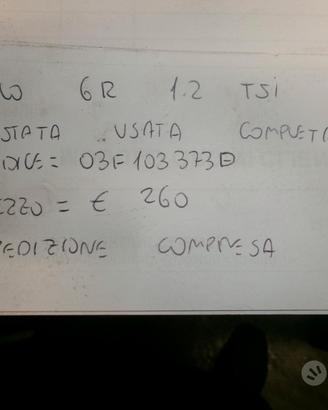 LO 6R 1.2 TSI
STATA USATA COMPLETA
DICE = 03F103373D
EZZO = € 260
PEDIZIONE COMPRESA